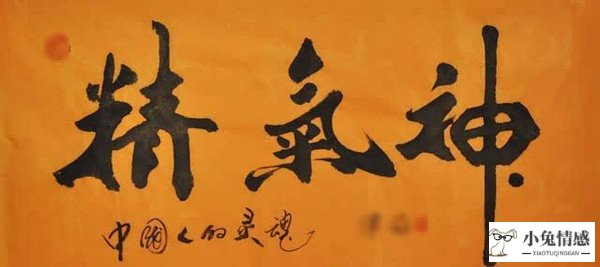 精氣神
中國人的灵魂
小兔情感
XIAOTUQINGGAN